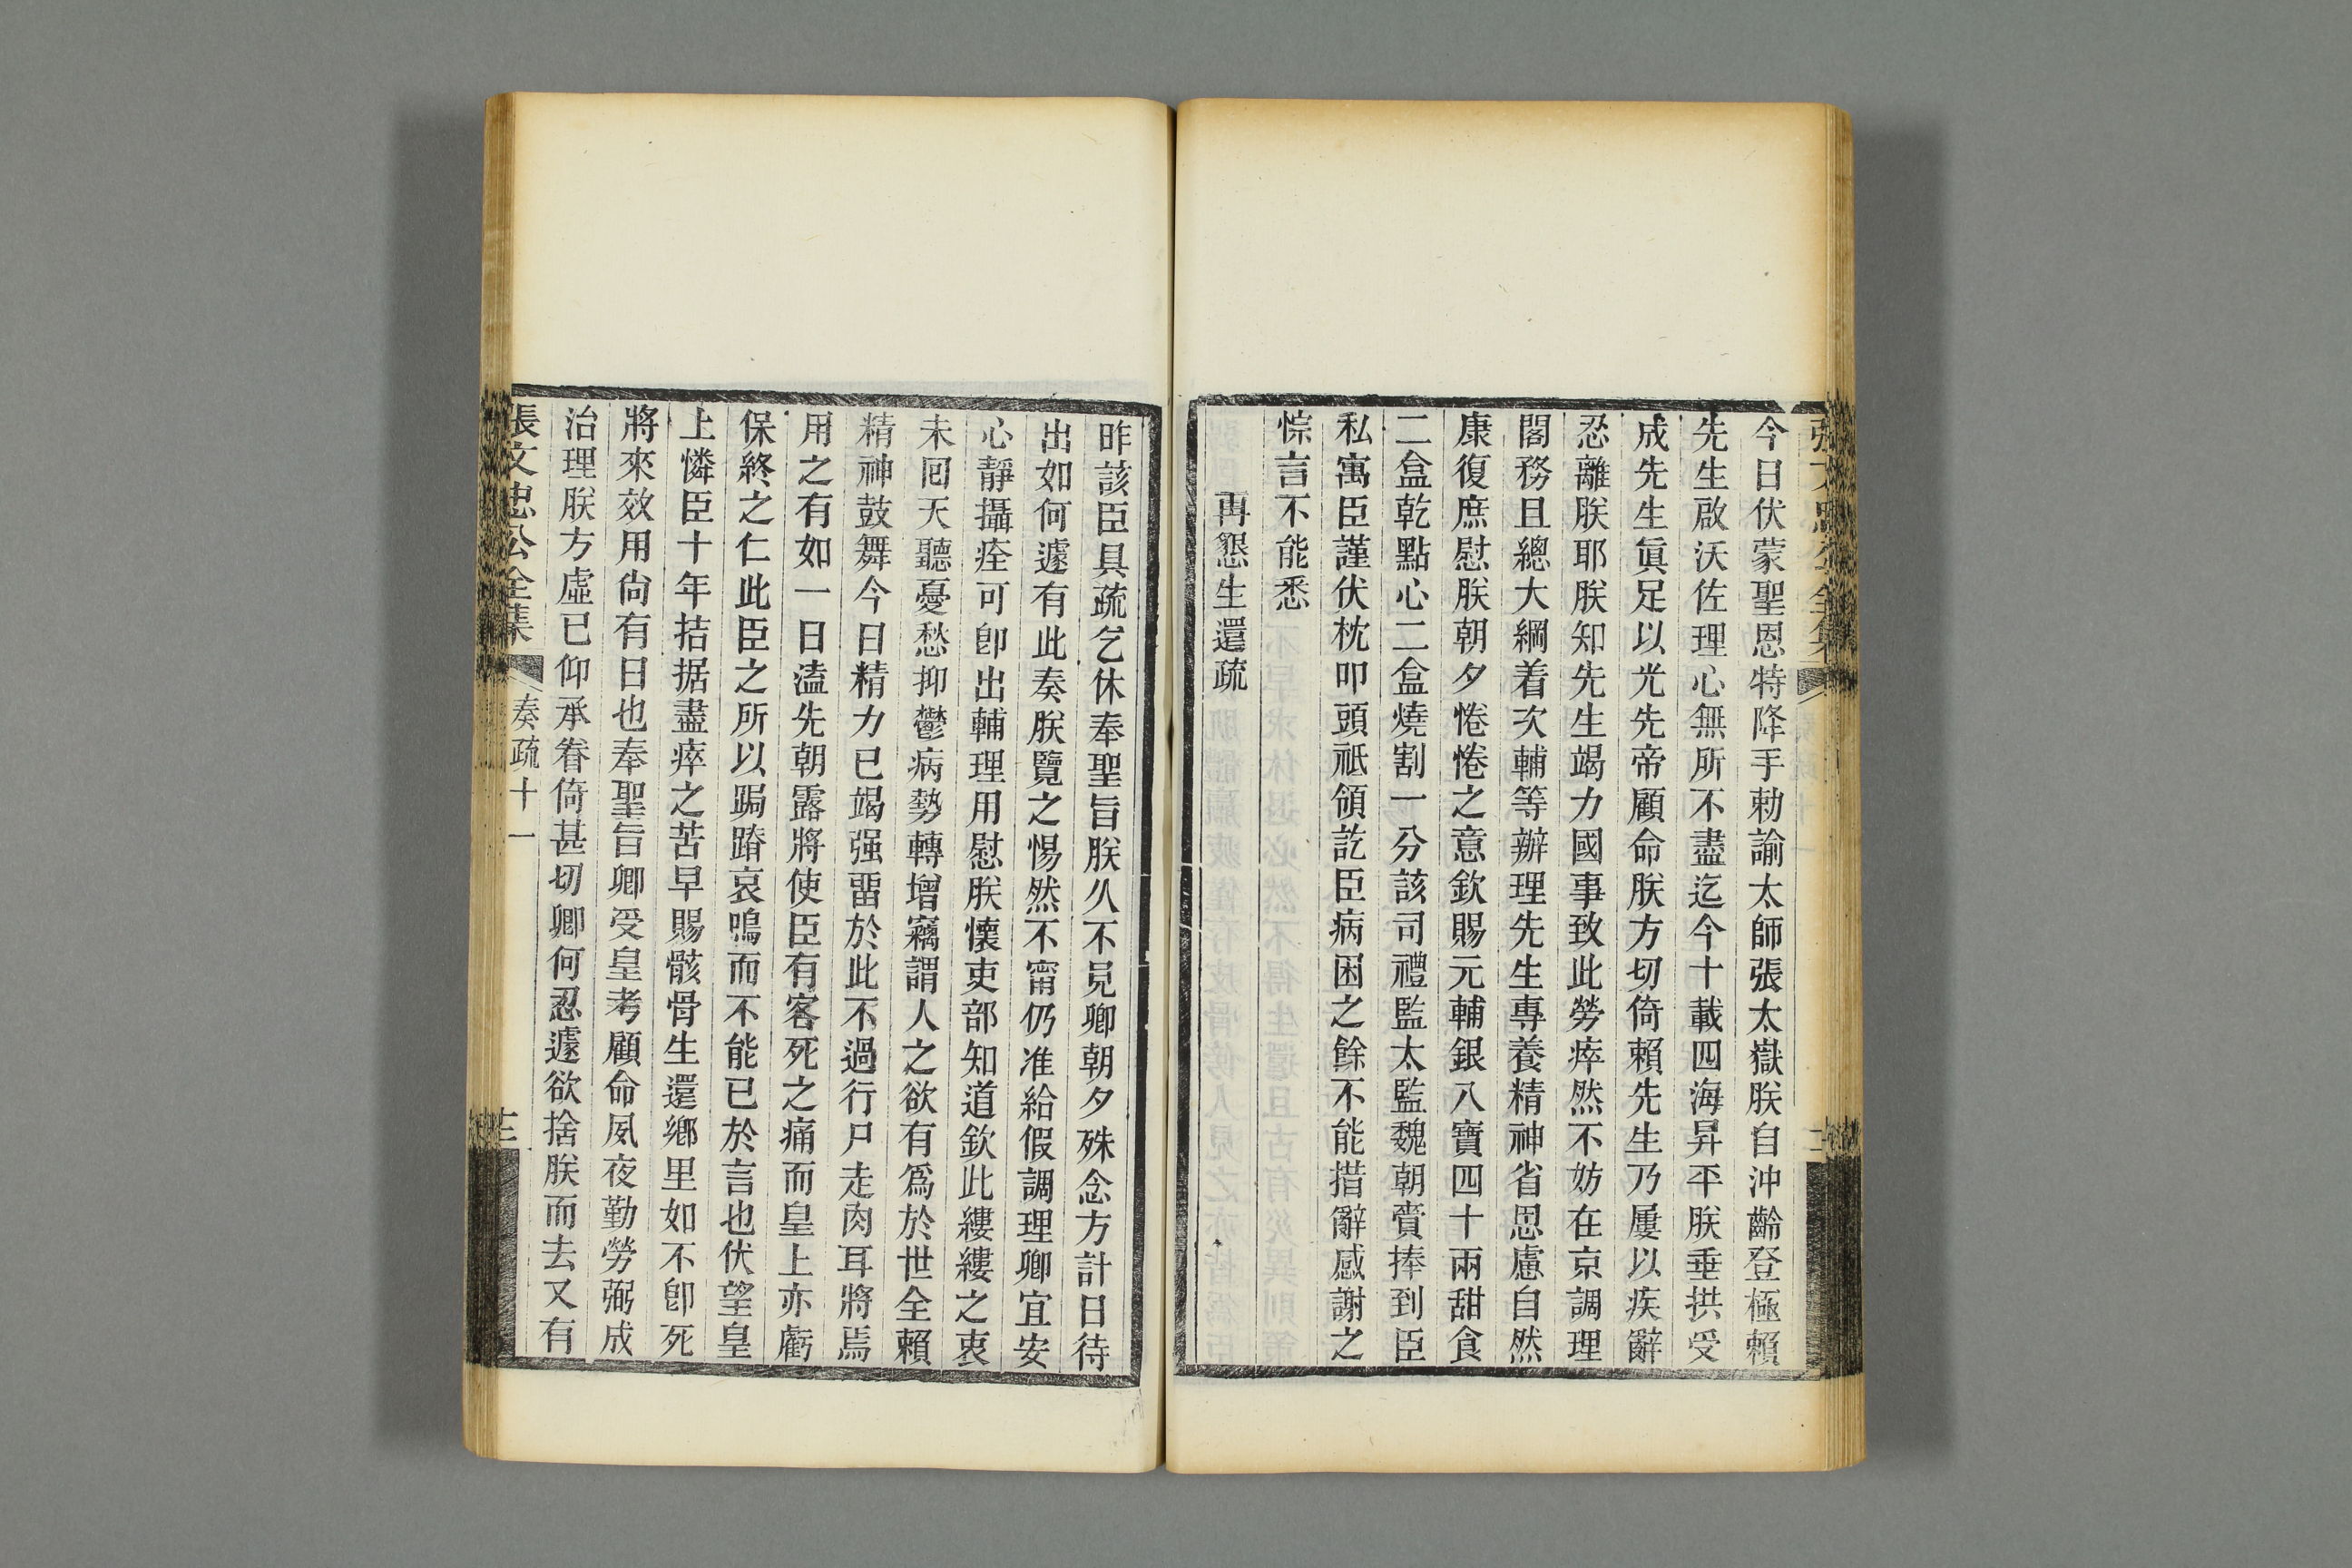 今日伏蒙聖恩特降手勅諭太師張太嶽朕自沖齡登極賴
先生啟沃佐理心無所不盡迄今十載四海昇平朕垂拱受
成先生眞足以光先帝顧命朕方切倚賴先生乃屢以疾辭
忍離朕耶朕知先生竭力國事致此勞瘁然不妨在京調理
閣務且總大綱着次輔等辦理先生專養精神省思慮自然
康復庶慰朕朝夕惓惓之意欽賜元輔銀八寶四十兩甜食
二盒乾點心二盒燒割一分該司禮監太監魏朝賫捧到臣
私寓臣謹伏枕叩頭祗領訖臣病困之餘不能措辭感謝之
悰言不能悉
再懇生還疏
昨該臣具疏乞休奉聖旨朕久不見卿朝夕殊念方計日待
出如何遽有此奏朕覽之惕然不甯仍准給假調理卿宜安
心靜攝痊可卽出輔理用慰朕懷吏部知道欽此縷縷之衷
未囘天聽憂愁抑鬱病勢轉增竊謂人之欲有爲於世全賴
精神鼓舞今日精力已竭强畱於此不過行尸走肉耳將焉
用之有如一日溘先朝露將使臣有客死之痛而皇上亦虧
保終之仁此臣之所以跼蹐哀鳴而不能已於言也伏望皇
上憐臣十年拮据盡瘁之苦早賜骸骨生還鄉里如不卽死
將來效用尙有日也奉聖旨卿受皇考顧命夙夜勤勞弼成
治理朕方虛已仰承眷倚甚切卿何忍遽欲捨朕而去又有
張文忠公全集 奏疏十一